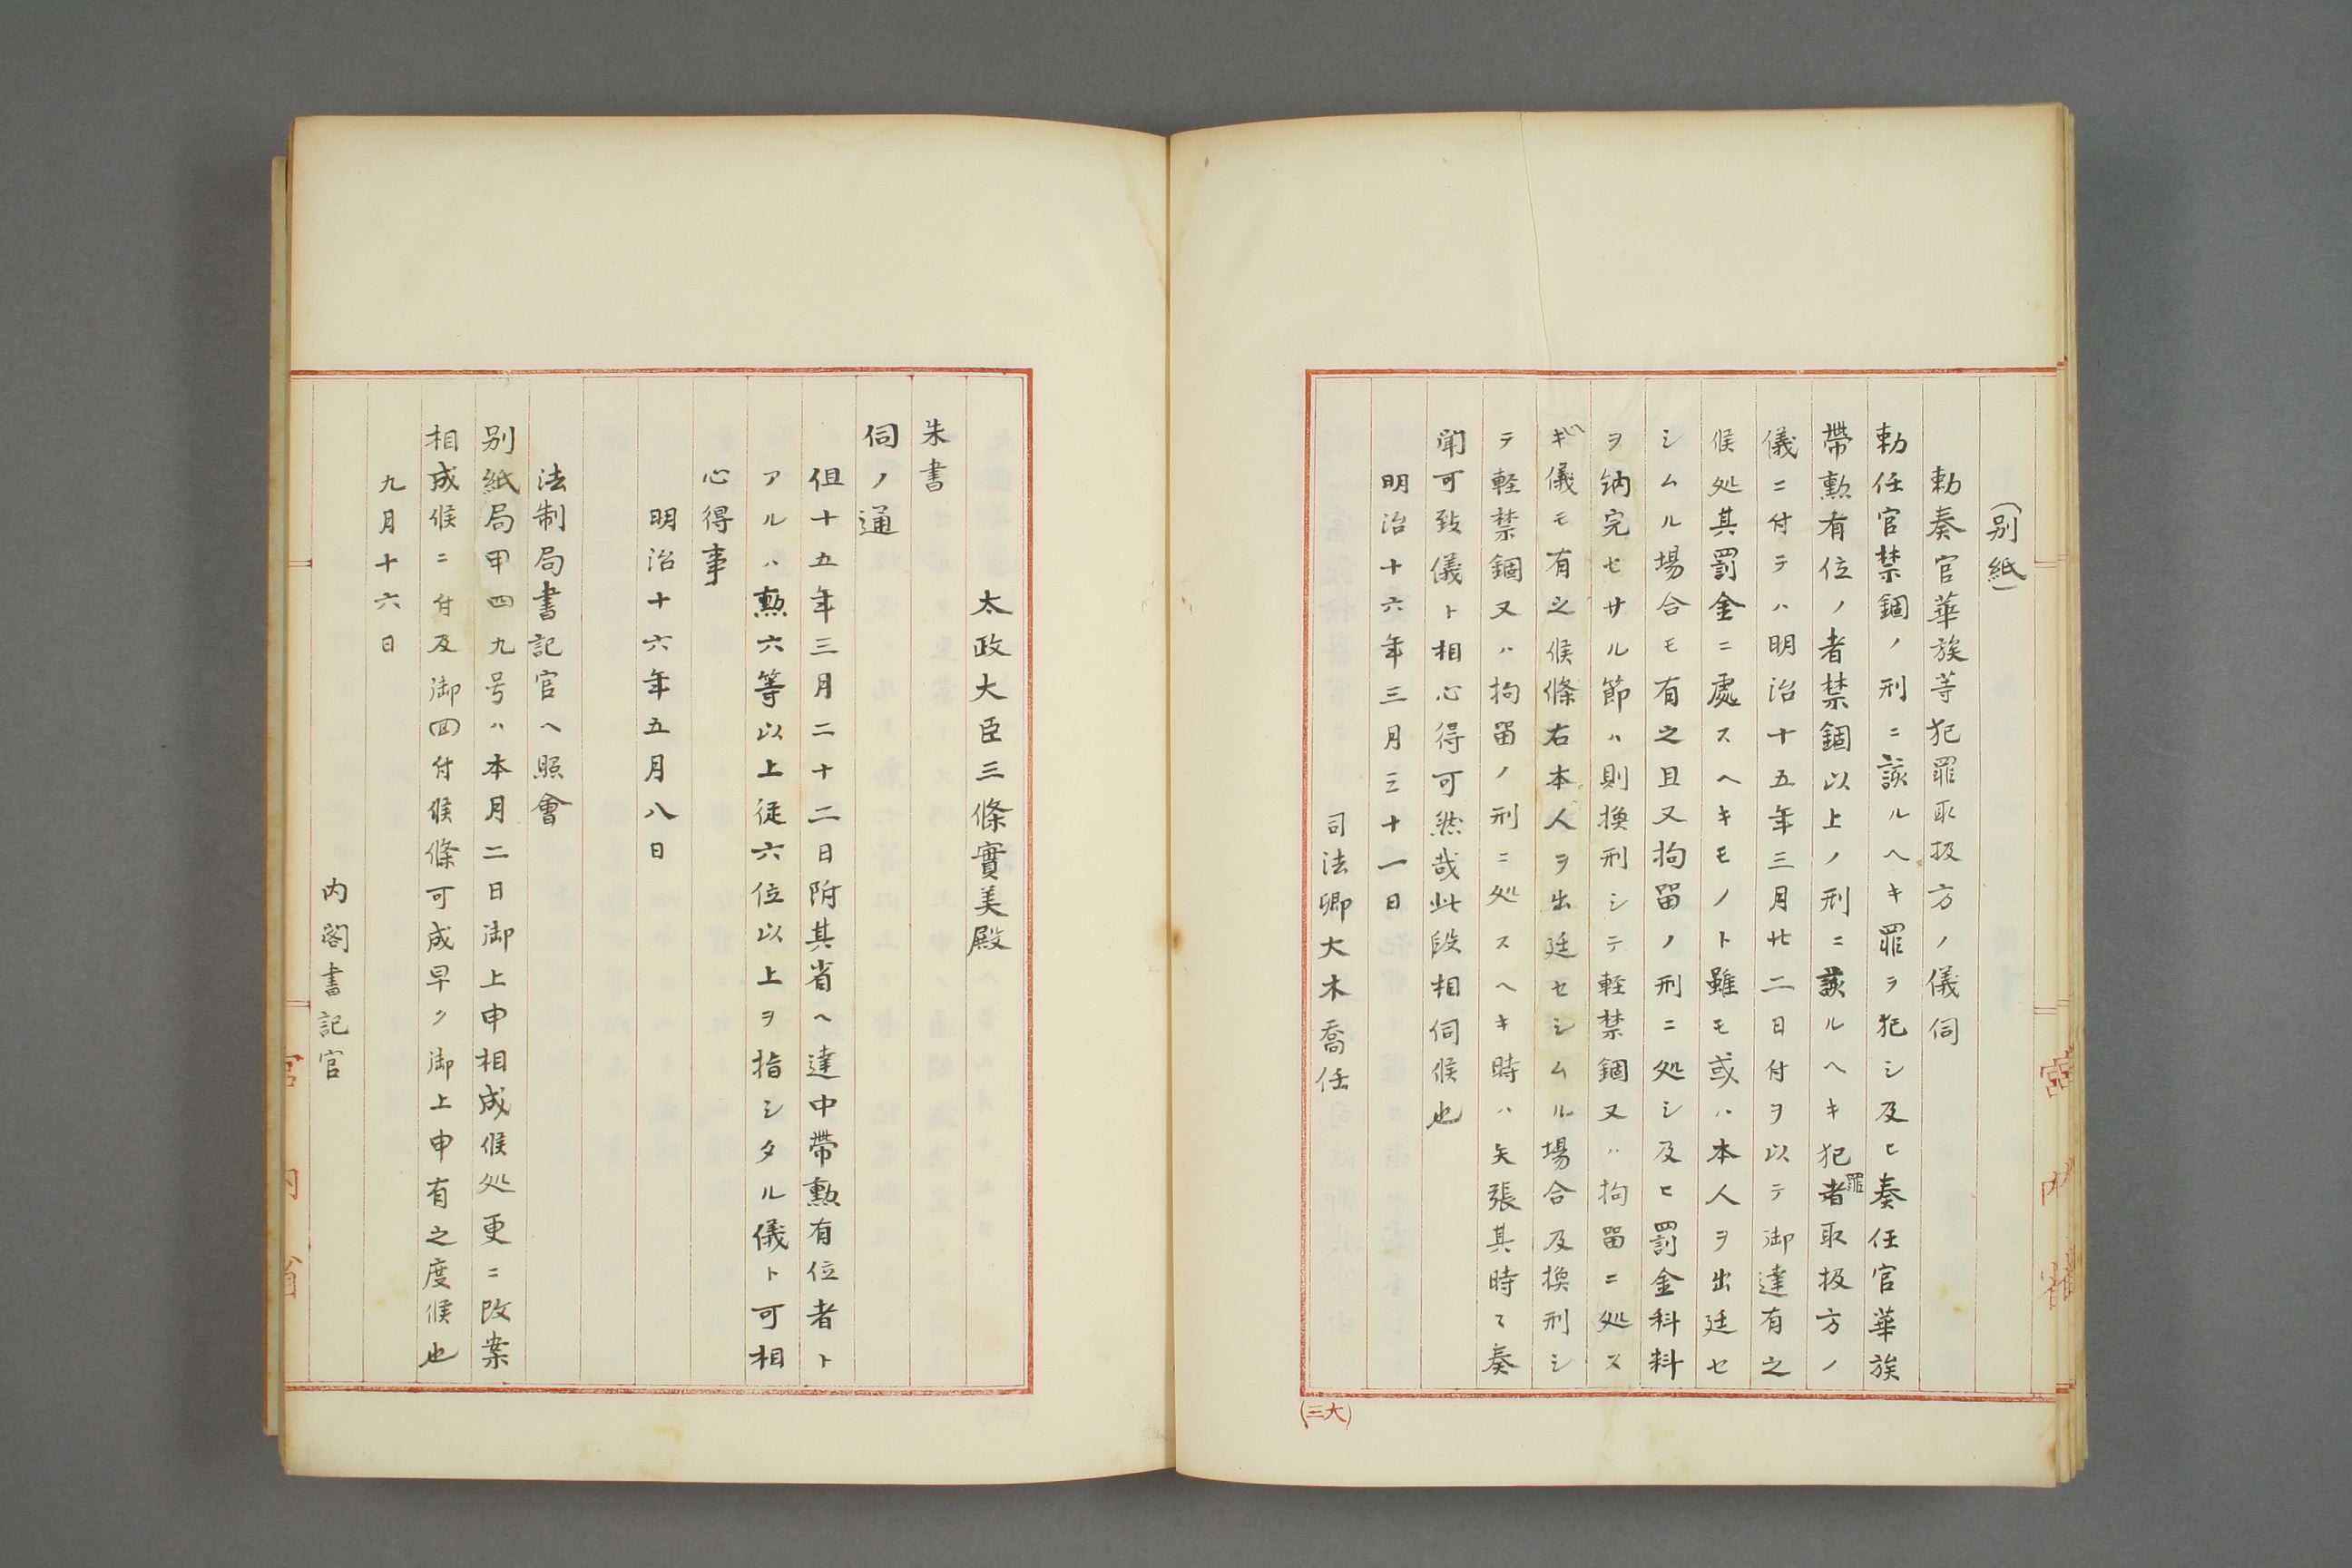 （別紙）
勅奏官華族等犯罪取扱方ノ儀伺
勅任官禁錮ノ刑ニ該ルヘキ罪ヲ犯シ及ヒ奏任官華族
帶勲有位ノ者禁錮以上ノ刑ニ該ルヘキ犯罪者取扱方ノ
儀ニ付テハ明治十五年三月廿二日付ヲ以テ御達有之
候処其罰金ニ處スヘキモノト雖モ或ハ本人ヲ出廷セ
シムル場合モ有之且又拘留ノ刑ニ処シ及ヒ罰金科料
ヲ納完セサル節ハ則換刑シテ軽禁錮又ハ拘留ニ処ス
ヘキ儀モ有之候條右本人ヲ出廷セシムル場合及換刑シ
テ軽禁錮又ハ拘留ノ刑ニ処スヘキ時ハ矢張其時々奏
聞可致儀ト相心得可然哉此段相伺候也
明治十六年三月三十一日
司法卿大木喬任
(三大)
宮内省
太政大臣三條實美殿
朱書
伺ノ通
但十五年三月二十二日附其省ヘ達中帶勲有位者ト
アルハ勲六等以上從六位以上ヲ指シタル儀ト可相
心得事
明治十六年五月八日
法制局書記官ヘ照會
別紙局甲四九号ハ本月二日御上申相成候処更ニ改案
相成候ニ付及御回付候條可成早ク御上申有之度候也
九月十六日
内閣書記官
宮内省